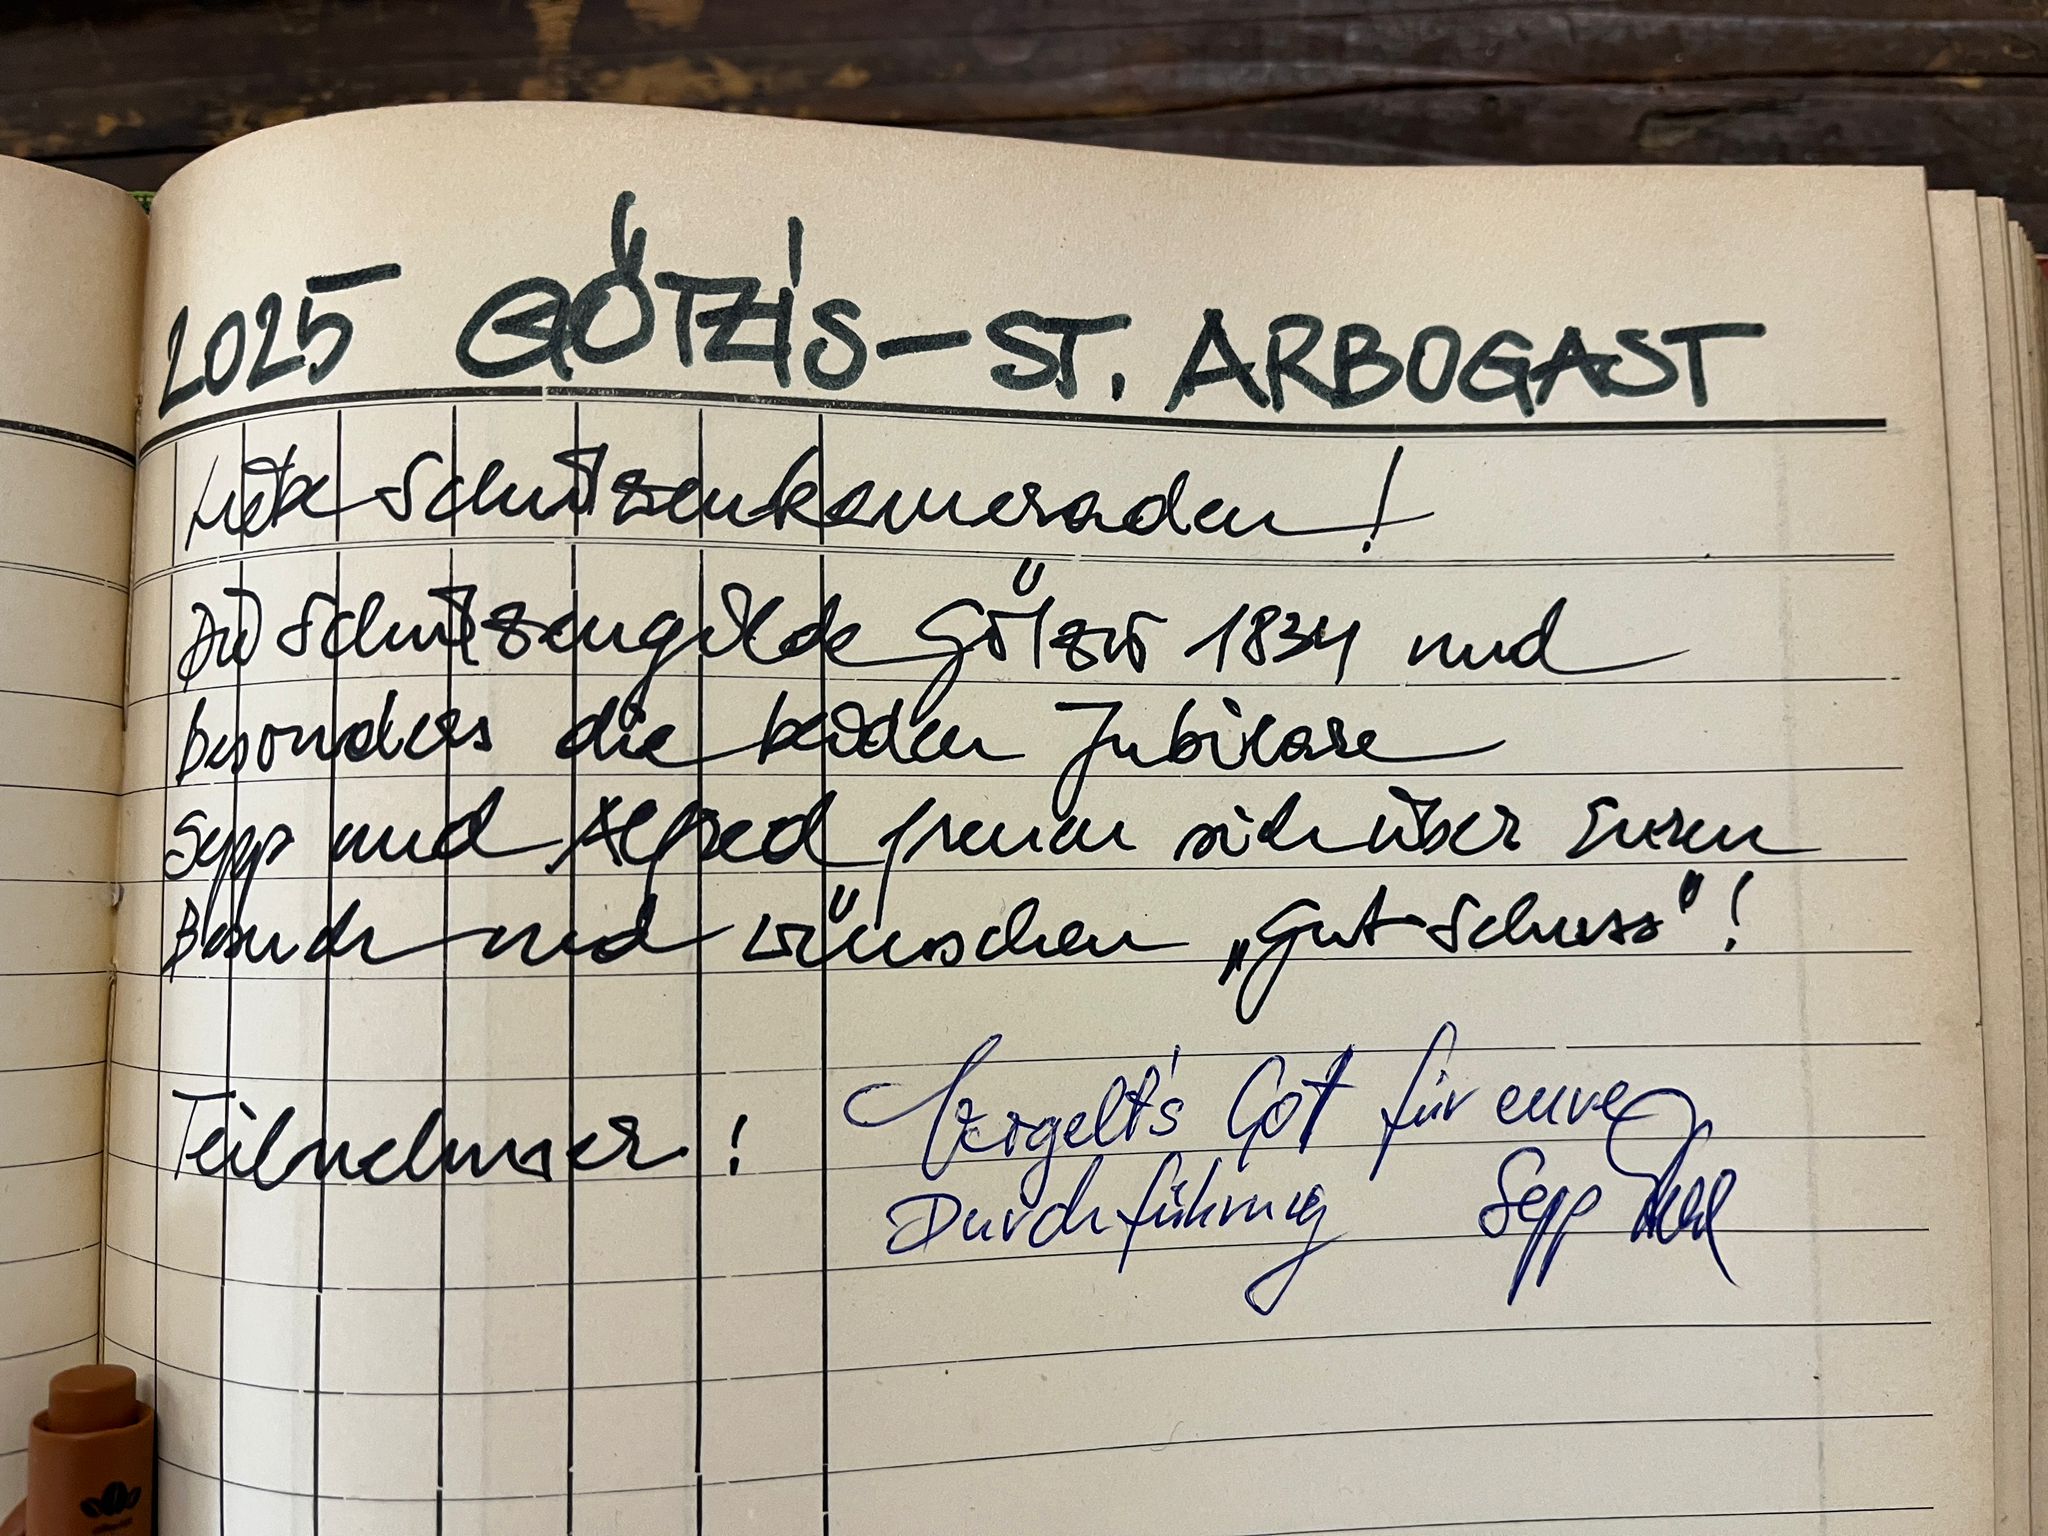 2025 GÖTZIS - ST. ARBOGAST
Liebe Schützenkameraden!
Die Schützengilde Götzis 1834 und
besonders die beiden Jubilare
Sepp und Alfred freuen sich über Euren
Besuch und wünschen „Gut Schuss"!
Teilnehmer!
Vergelt's Got für eure
Durchführung Sepp